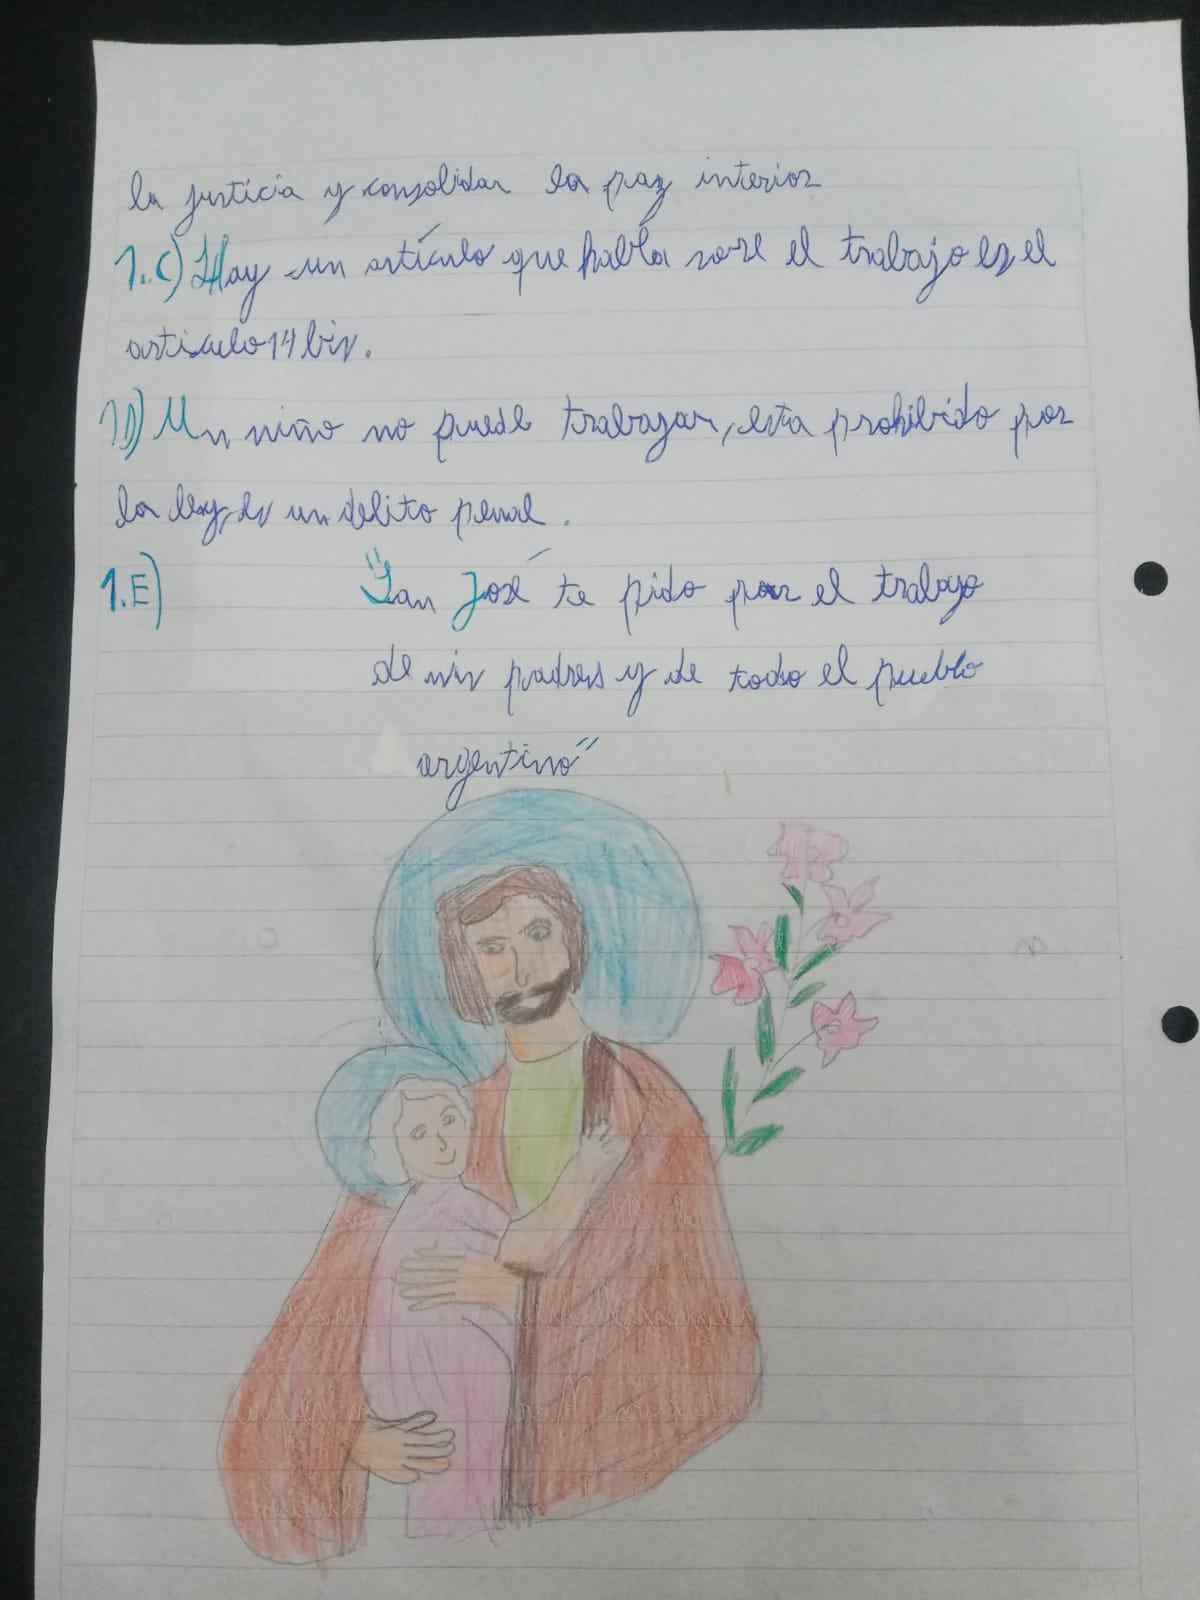 la justicia y consolidar la paz interior
1.C) Hay un artículo que habla sore el trabajo es el
articulo 14 bis.
1D) Un niño no puede trabajar, esta prohibido por
la ley, es un delito penal.
1.E) "San José te pido por el trabajo
de mis padres y de todo el pueblo
argentino"